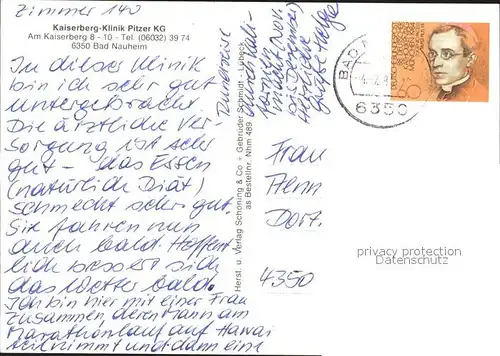 Zimmer 140
Kaiserberg-Klinik Pitzer KG
Am Kaiserberg 8 - 10 - Tel. (06032) 39 74
6350 Bad Nauheim
In dieser Klinik
bin ich sehr gut
untergebracht.
Die ärztliche Ver-
sorgung ist sehr
gut - das Essen
(natürlich Diät)
schmeckt sehr gut.
Sie fahren nun
auch bald. Hoffent
lich bessert sich
das Wetter bald.
Ich bin hier mit einer Frau
zusammen deren Mann am
Marathonlauf auf Hawai
teilnimmt und dann eine
Rundreise
durch Kali-
fornien
bis Dezember
Herzliche
Grüße Helga
Herst. u. Verlag Schöning & Co + Gebrüder Schmidt - Lübeck
as Bestellnr. Nhm 489
BAD
6350
Frau
Henn
Dort.
4350
privacy protection
Datenschutz